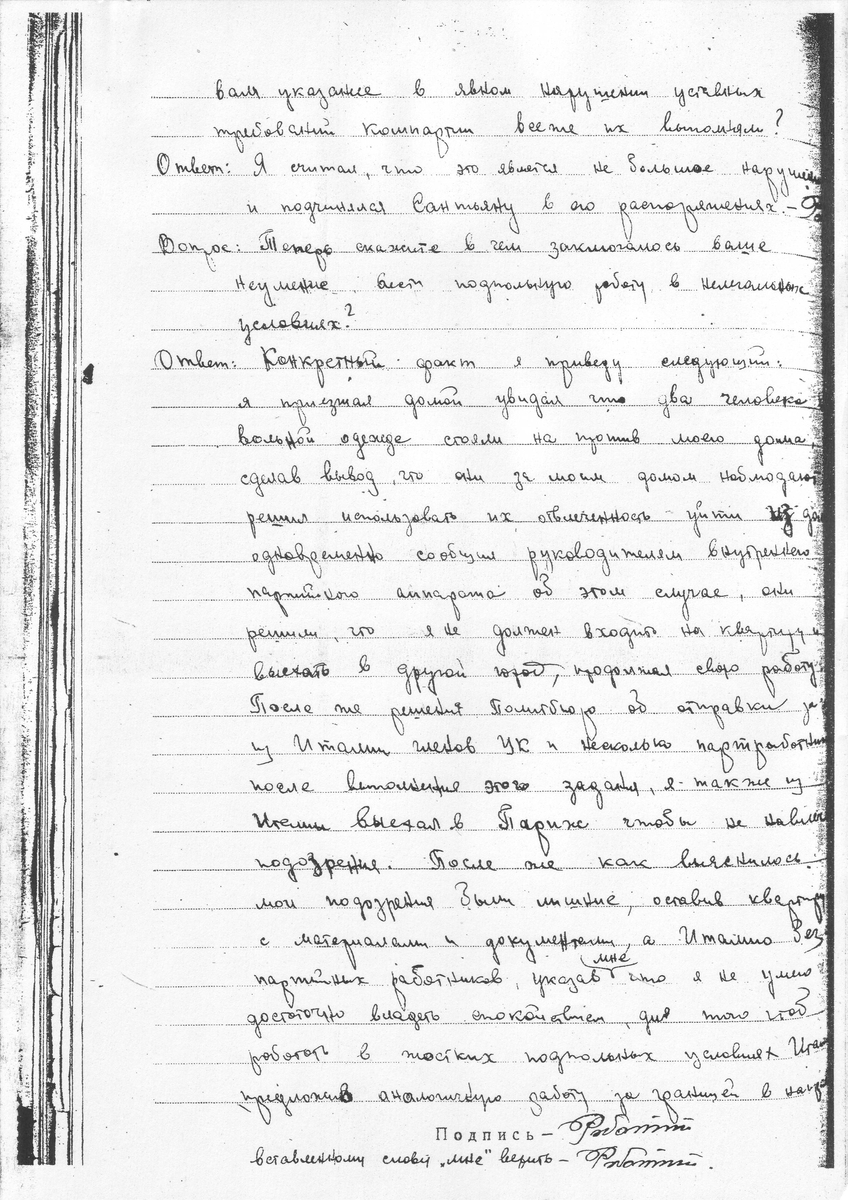 вали указание в явном нарушении уставных
требований компартии все же их выполняли?
Ответ: Я считал, что это является не большое наруше
и подчинялся Сантьяну в его распоряжениях. –
Вопрос: Теперь скажите в чем заключалось ваше
неумение, вести подпольную работу в нелегальных
условиях?
Ответ: Конкретный факт я приведу следующий:
я приезжая домой увидал что два человека
вольной одежде стояли на против моего дома,
сделав вывод, что они за моим домом наблюдают
решил использовать их отвлеченность уйти из до
одновременно сообщил руководителям внутреннего
партийного аппарата об этом случае, они
решили, что я не должен входить на квартиру и
выехать в другой город, продолжая свою работу.
После же решения Политбюро об отправки за
из Италии членов ЦК и несколько партработни
после выполнения этого задания, я также из
Италии выехал в Париж чтобы не навлеч
подозрение. После же как выяснилось
мои подозрения были лишние, оставив квартиру
с материалами и документами, а Италию без
мне
партийных работников, указав что я не умею
достаточно владеть спокойствием, для того чтоб
работать в жостких подпольных условиях Ита
предложив аналогичную работу за границей в
Подпись – Роботти
вставленному слову „мне" верить – Роботти.